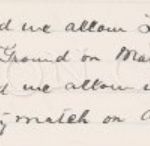 d we allow
Ground on Ma
d we allow
y match on